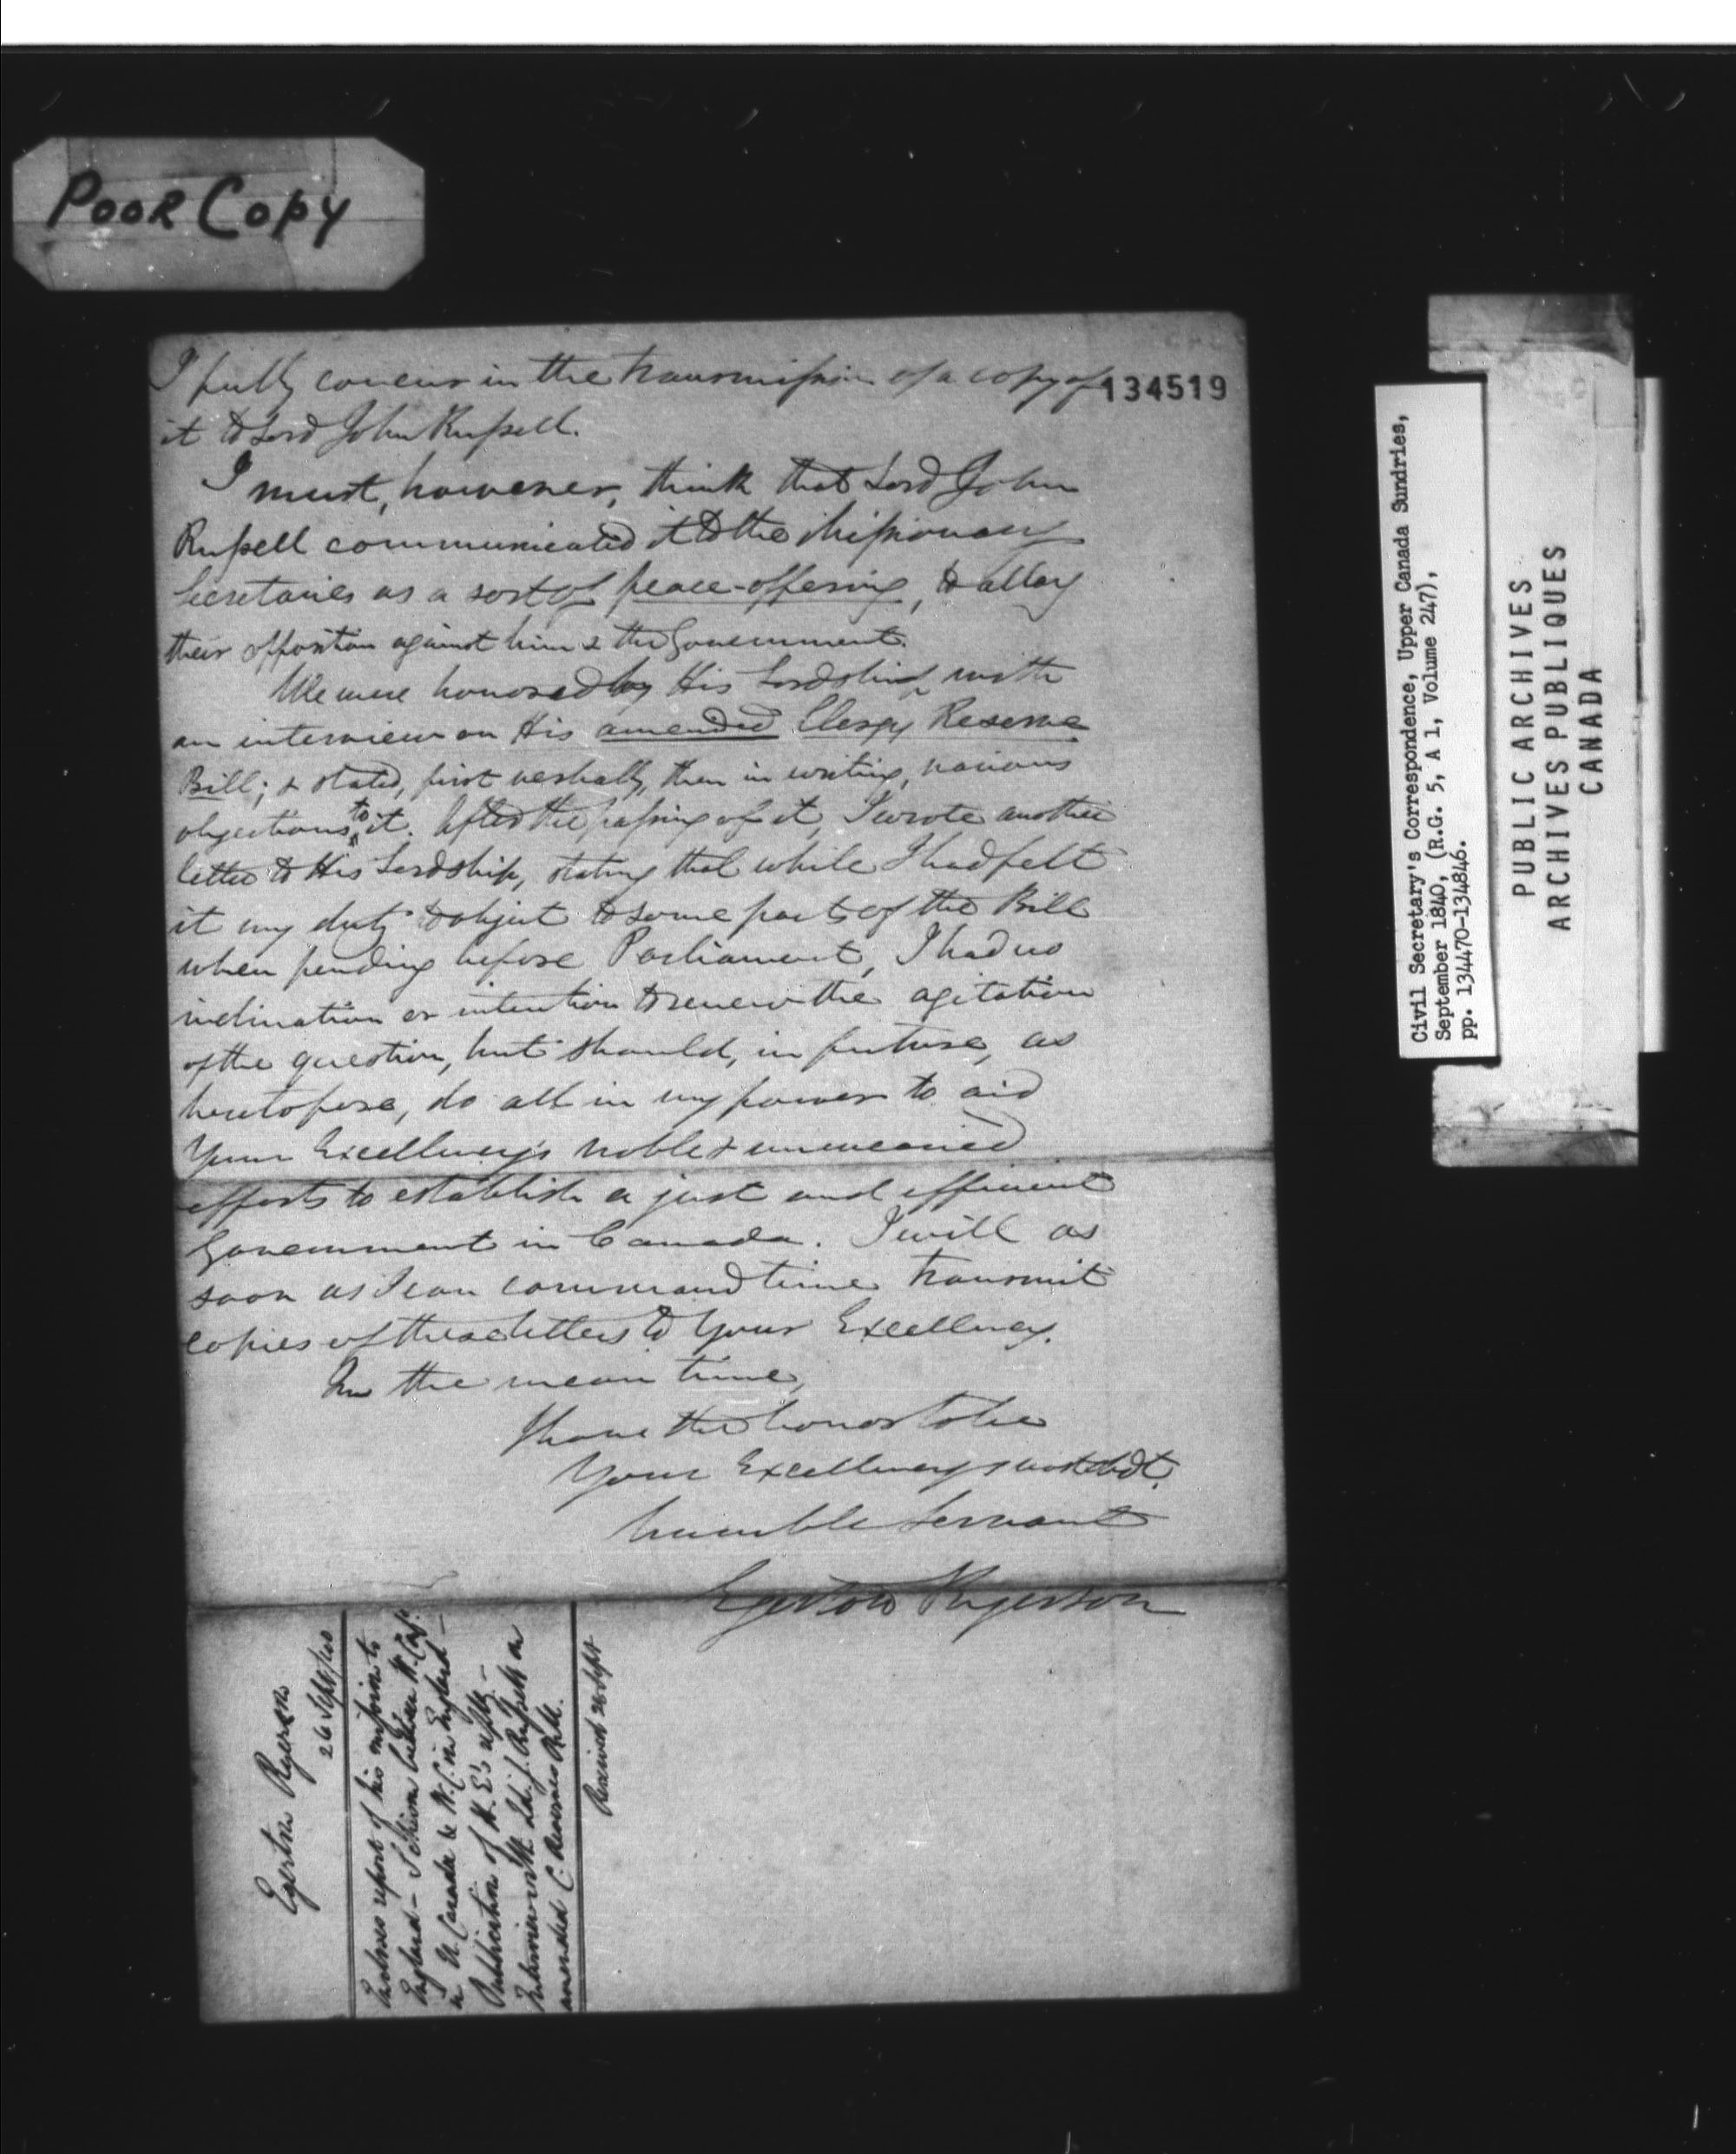 Poor Copy
134519
I fully concur in the transmission of a copy of
it to Lord John Russell.
I must, however, think that Lord John
Russell communicated it to the Missionary
Secretaries as a sort of peace-offering, to allay
their opposition against him & the Government.
We were honored by His Lordship with
an interview on His amended Clergy Reserve
Bill; & stated, first verbally, then in writing, various
objections to it. After the passing of it, I wrote another
letter to His Lordship, stating that while I had felt
it my duty to object to some parts of the Bill
when pending before Parliament, I had no
inclination or intention to renew the agitation
of the question, but should, in future, as
heretofore, do all in my power to aid
Your Excellency's noble & unwearied
efforts to establish a just and efficient
Government in Canada. I will as
soon as I can command time transmit
copies of these letters to Your Excellency.
In the mean time,
I have the honor to be
Your Excellency's most obdt.
humble Servant
Egerton Ryerson
Egerton Ryerson
26 Sept/40
Encloses report of his mission to
England – Schism between W. Conf.
in U. Canada & W. C. in England –
Publication of H. E's reply –
Interview with Ld. J. Russell on
amended C. Reserves Bill.
Received 26 Sept
Civil Secretary's Correspondence, Upper Canada Sundries,
September 1840, (R.G. 5, A 1, Volume 247),
pp. 134470-134846.
PUBLIC ARCHIVES
ARCHIVES PUBLIQUES
CANADA